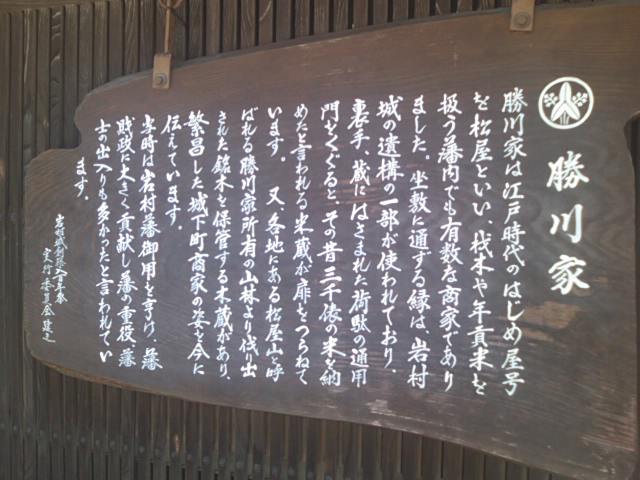 勝川家
勝川家は江戸時代のはじめ屋号
を松屋といい、材木や年貢米を
扱う藩内でも有数な商家であり
ました。坐敷に通ずる縁は、岩村
城の遺構の一部が使われており、
裏手、蔵にはさまれた荷駄の通用
門をくぐると、その昔三千俵の米を納
めたと言われる米蔵が扉をつらねて
います。又各地にある松屋山と呼
ばれる勝川家所有の山林より伐り出
された銘木を保管する木蔵があり、
繁昌した城下町商家の姿を今に
伝えています。
当時は岩村藩御用を享け、藩
財政に大きく貢献し藩の重役、藩
士の出入りも多かったと言われてい
ます。
岩村城創築八百年祭
実行委員会建之